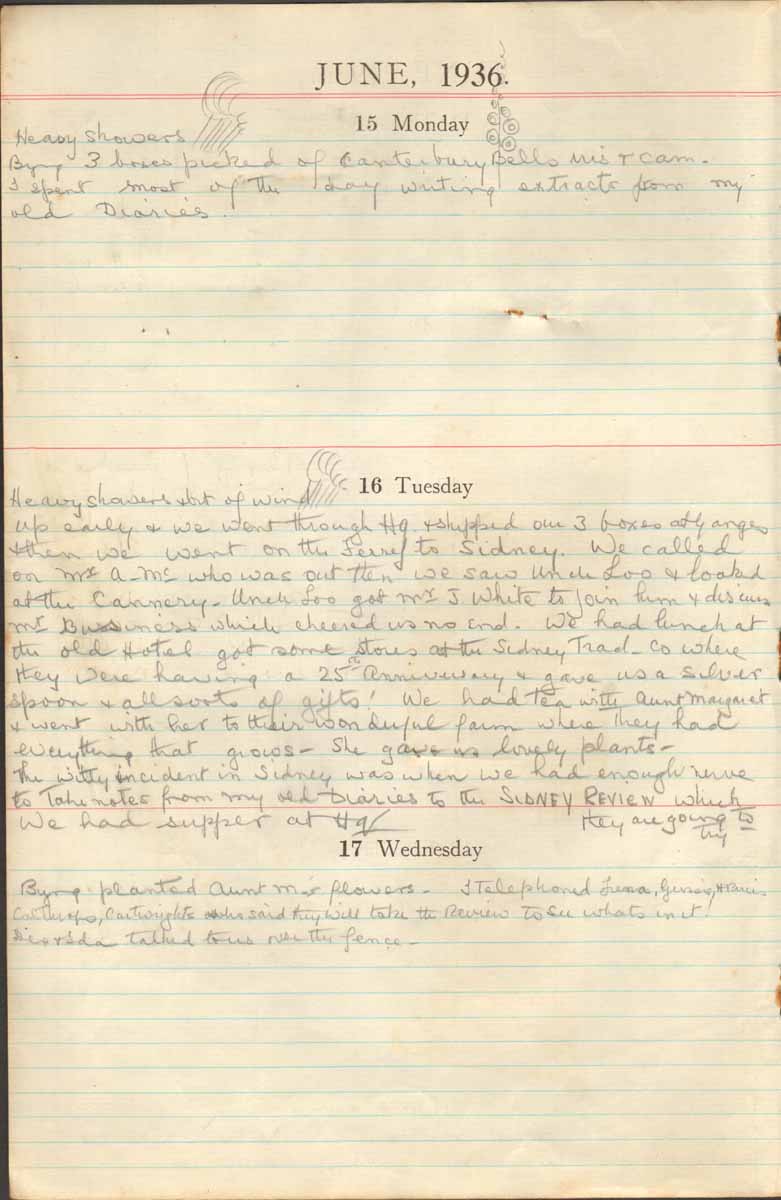 JUNE, 1936.
15 Monday
Heavy showers
Byng 3 boxes picked of Canterbury Bells mis & cam.
I spent most of the day writing extracts from my
old Diaries.
16 Tuesday
Heavy showers & bit of wind
up early & we went through Hq & shipped our 3 boxes at Ganges
& then we went on the Ferry to Sidney. We called
on Mrs A- Mc who was out then we saw Uncle Loo & looked
at the Cannery - Uncle Loo got Mr J White to join him & discuss
Mr Bussiness which cheered us no end. We had lunch at
the old Hotel got some stores at the Sidney Trad- Co where
they were having a 25th Anniversary & gave us a silver
spoon & all sorts of gifts! We had tea with Aunt Margaret
& went with her to their wonderful farm where they had
everything that grows - She gave us lovely plants -
The witty incident in Sidney was when we had enough nerve
to Take notes from my old Diaries to the SIDNEY REVIEW which
We had supper at Hq
they are going to
try
17 Wednesday
Byng planted Aunt M's flowers - I Telephoned
Cartwrights who said they will take the Review to see whats in it.
talked to us over the fence -